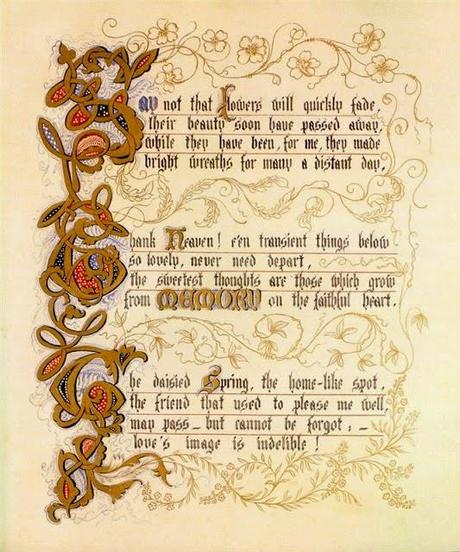 Say not that Flowers will quickly fade,
their beauty soon have passed away,
while they have been, for me, they made
bright wreaths for many a distant day,
Thank Heaven! e'en transient things below
so lovely, never need depart,
the sweetest thoughts are those which grow
from MEMORY on the faithful heart.
The daisied Spring, the home-like spot,
the friend that used to please me well,
may pass – but cannot be forgot, –
love's image is indelible!